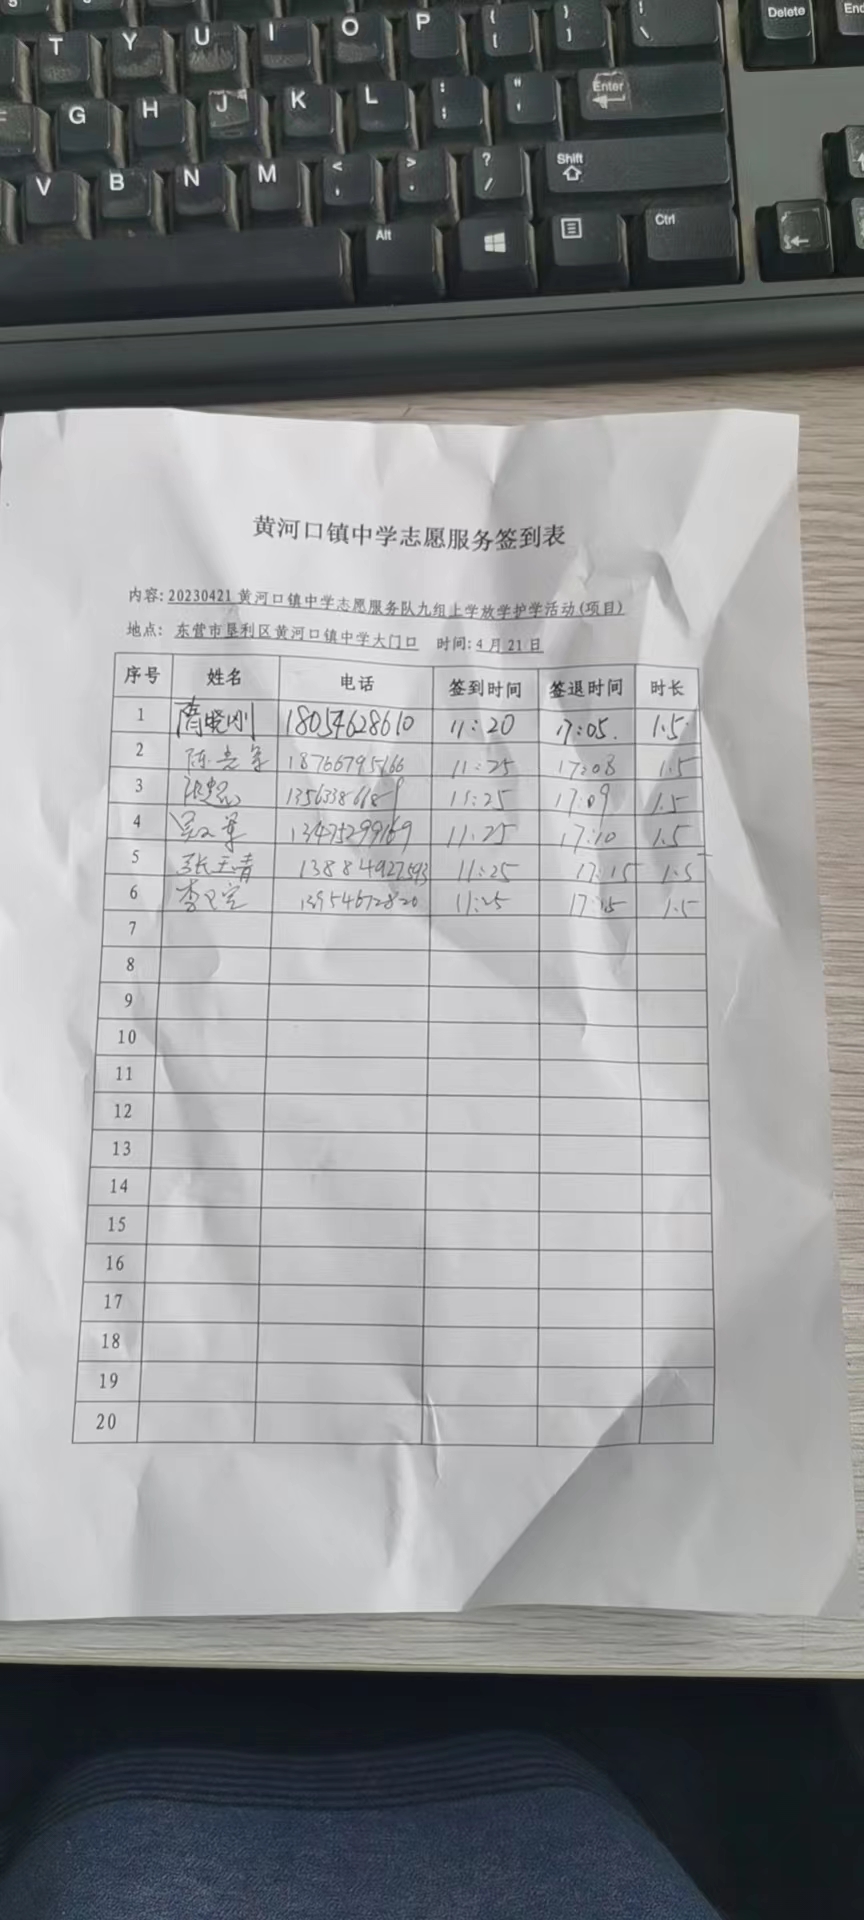 T Y U I O P { [ } ] | \ Delete End
G H J K L : ; " ' Enter
V B N M < , > . ? / Shift
Alt Ctrl
黄河口镇中学志愿服务签到表
内容: 20230421 黄河口镇中学志愿服务队九组上学放学护学活动(项目)
地点: 东营市垦利区黄河口镇中学大门口 时间: 4 月 21 日
序号 姓名 电话 签到时间 签退时间 时长
1 隋晓刚 18054628610 11:20 17:05. 1.5
2 陈光军 18766795166 11:25 17:08 1.5
3 11:25 17:09 1.5
4 13475299169 11:25 17:10 1.5
5 张玉青 13884927593 11:25 17:15 1.5
6 李卫宝 13954672820 11:25 17:15 1.5
7
8
9
10
11
12
13
14
15
16
17
18
19
20